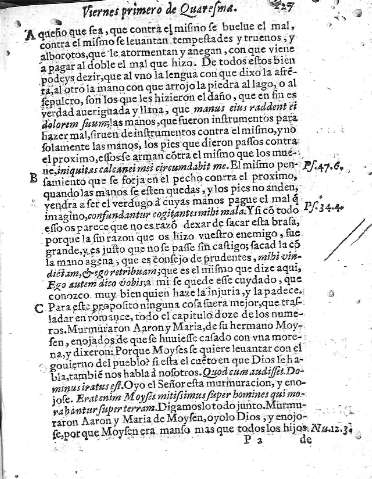 Viernes primero de Quaresma. 227
A queño que sea, que contra el mismo se buelue el mal,
contra el mismo se leuantan tempestades y truenos, y
alborotos, que le atormentan y anegan, con que viene
a pagar al doble el mal que hizo. De todos estos bien
podeys dezir, que al vno la lengua con que dixo la afrẽ-
ta, al otro la mano con que arrojo la piedra al lago, o al
sepulcro, son los que les hizieron el daño, que en fin es
verdad aueriguada y llana, que manus eius raddent ei
dolorem suum, las manos, que fueron instrumentos para
hazer mal, siruen de instrumentos contra el mismo, y no
solamente las manos, los pies que dieron passos contra
el proximo, essos se arman cõtra el mismo que los mue-
ue, iniquitas calcanei mei circumdabit me. El mismo pen- Ps. 47.6.
B samiento que se forja en el pecho contra el proximo,
quando las manos se esten quedas, y los pies no anden,
vendra a ser el verdugo â cuyas manos pague el mal q̃
imagino, confundantur cogitantes mihi mala. Y si cõ todo Ps. 34.4.
esso os parece que no es razõ dexar de sacar esta brasa,
porque la sin razon que os hizo vuestro enemigo, fue
grande, y es justo que no se passe sin castigo; sacad la cõ
la mano agena, que es consejo de prudentes, mihi vin-
dictam, & ego retribuam; que es el mismo que dize aqui,
Ego autem dico vobis; a mi se quede esse cuydado, que
conozco muy bien quien haze la injuria, y la padece.
C Para este proposito ninguna cosa fuera mejor, que tras-
ladar en romance, todo el capitulo doze de los nume-
ros. Murmuraron Aaron y Maria, de su hermano Moy-
sen, enojados de que se huuiesse casado con vna more-
na, y dixeron: Porque Moyses se quiere leuantar con el
gouierno del pueblo? si esta el cuẽto en que Dios le ha-
bla, tambiẽ nos habla â nosotros. Quod cum audisset Do-
minus iratus est. Oyo el Señor esta murmuracion, y eno-
jose. Erat enim Moyses mitissimus super homines qui mo-
rabantur super terram. Digamoslo todo junto. Murmu-
raron Aaron y Maria de Moysen, oyolo Dios, y enojo-
se, porque Moysen era manso mas que todos los hijos Nu. 12.3.
P 2 de